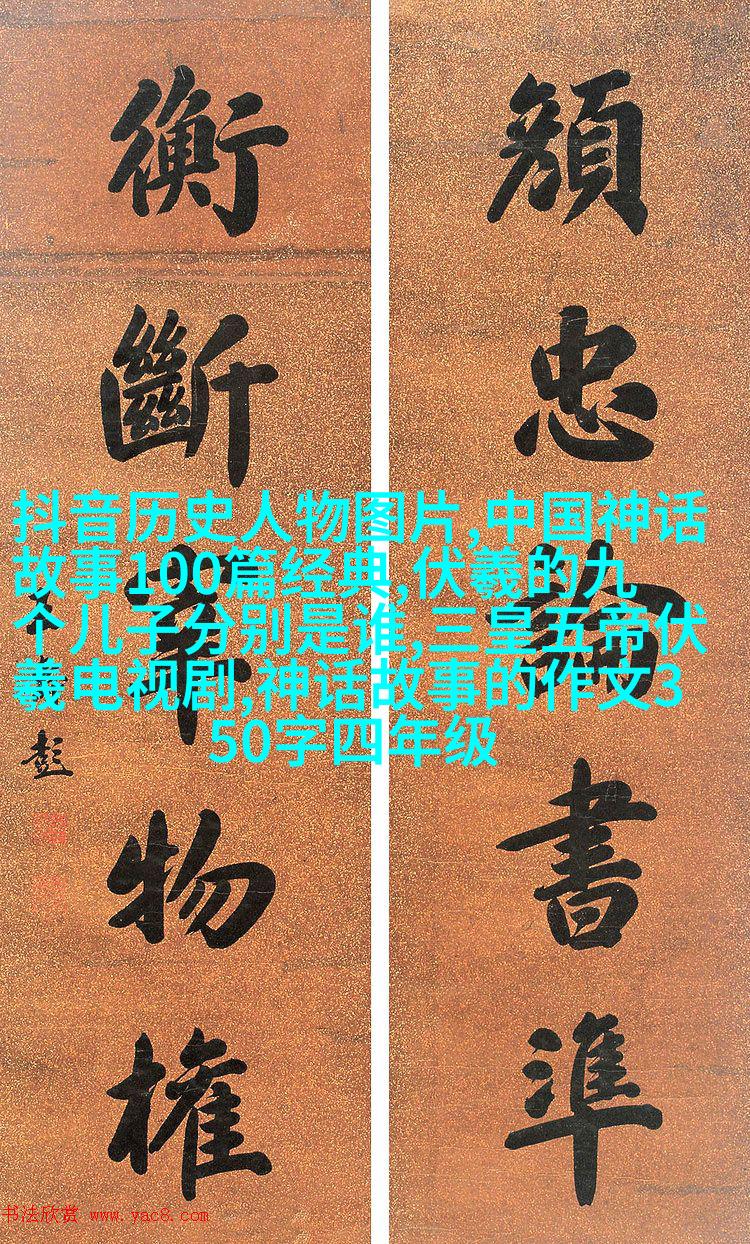 顏忠論書準
衡斷物權
彭
抖音历史人物图片,中国神话
故事100篇经典,伏羲的九
个儿子分别是谁,三皇五帝伏
羲电视剧,神话故事的作文3
50字四年级
书法欣赏 www.yac8.com